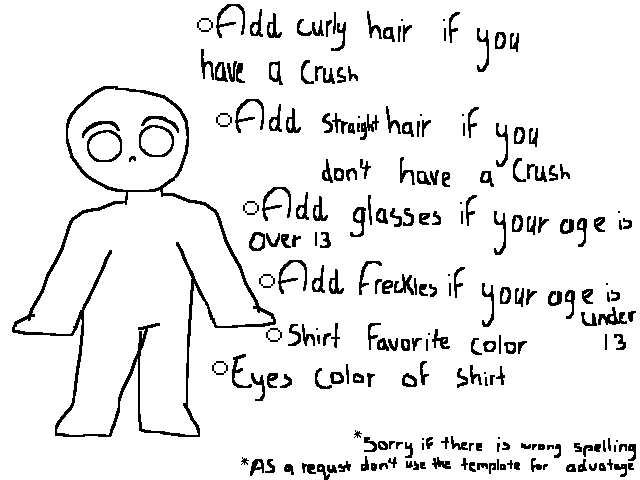 Add curly hair if you
have a crush
Add straight hair if you
don't have a crush
Add glasses if your age is
over 13
Add freckles if your age is
under
13
Shirt favorite color
Eyes color of shirt
*Sorry if there is wrong spelling
*AS a requst don't use the template for advatage